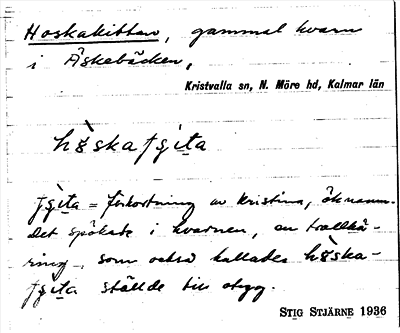 Hoskakittan, gammal kvarn
i Äskebäcken,
Kristvalla sn, N. Möre hd, Kalmar län
= förkortning av Kristina, öknamn.
Det spökade i kvarnen, en trollkä-
ring, som också kallades
ställde till otyg.
STIG STJÄRNE 1936